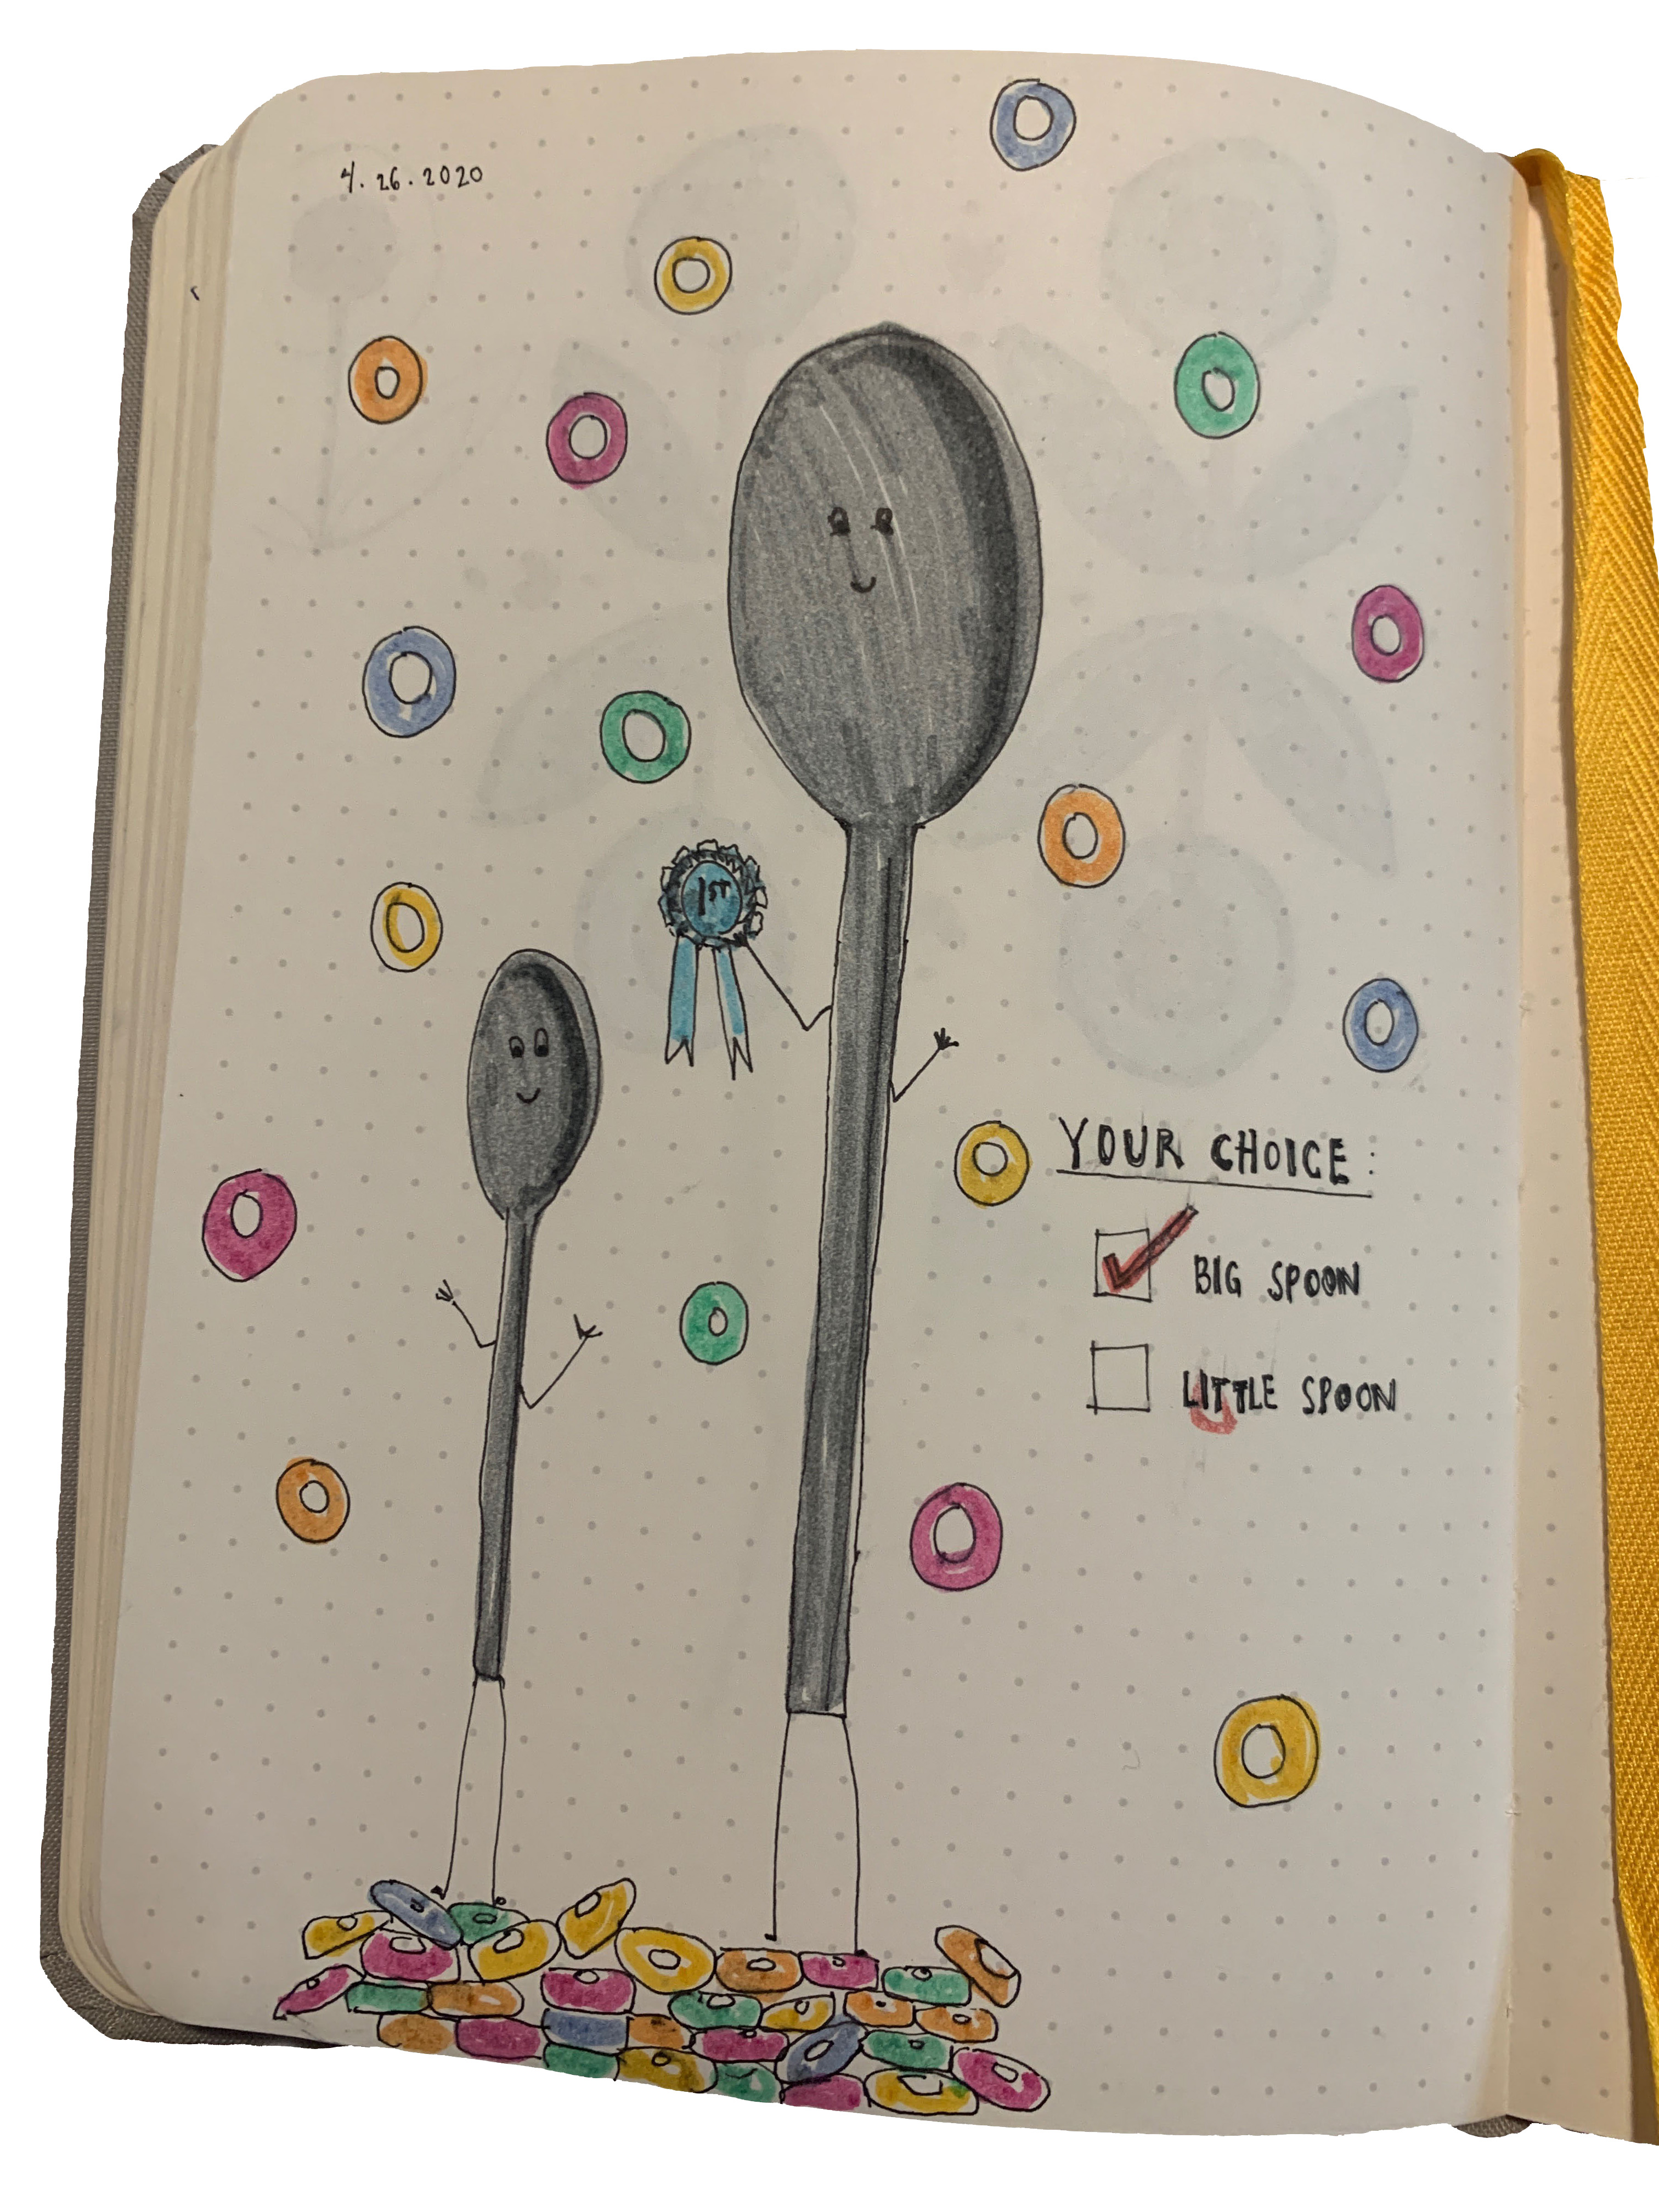 4.26.2020
1ST
YOUR CHOICE:
BIG SPOON
LITTLE SPOON